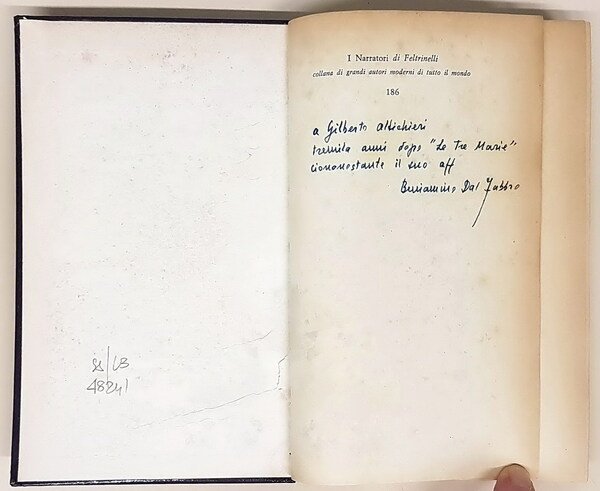 I Narratori di Feltrinelli
collana di grandi autori moderni di tutto il mondo
186
a Gilberto Altichieri
tremila anni dopo "Le Tre Marie"
ciononostante il suo aff
Beniamino Dal Fabbro
48241